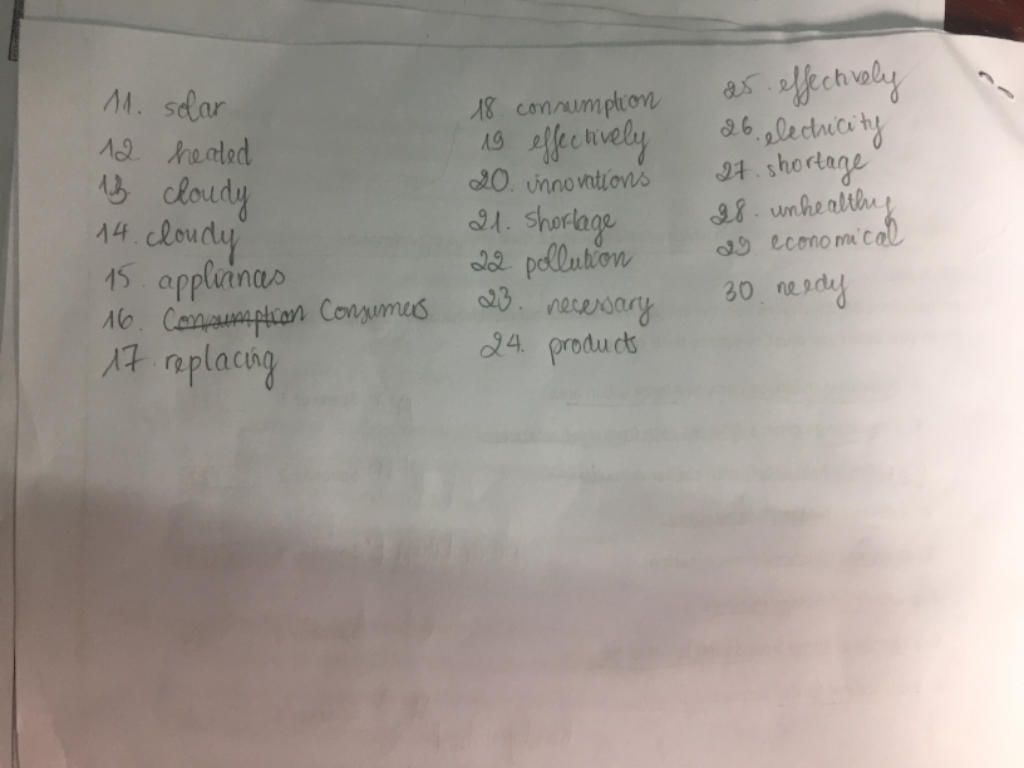 11. solar
12 heated
13 cloudy
14. cloudy
15. appliances
16. Consumption Consumers
17. replacing
18 consumption
19 effectively
20. innovations
21. shortage
22 pollution
23. necessary
24. products
25. effectively
26. electricity
27. shortage
28. unhealthy
29 economical
30. needy